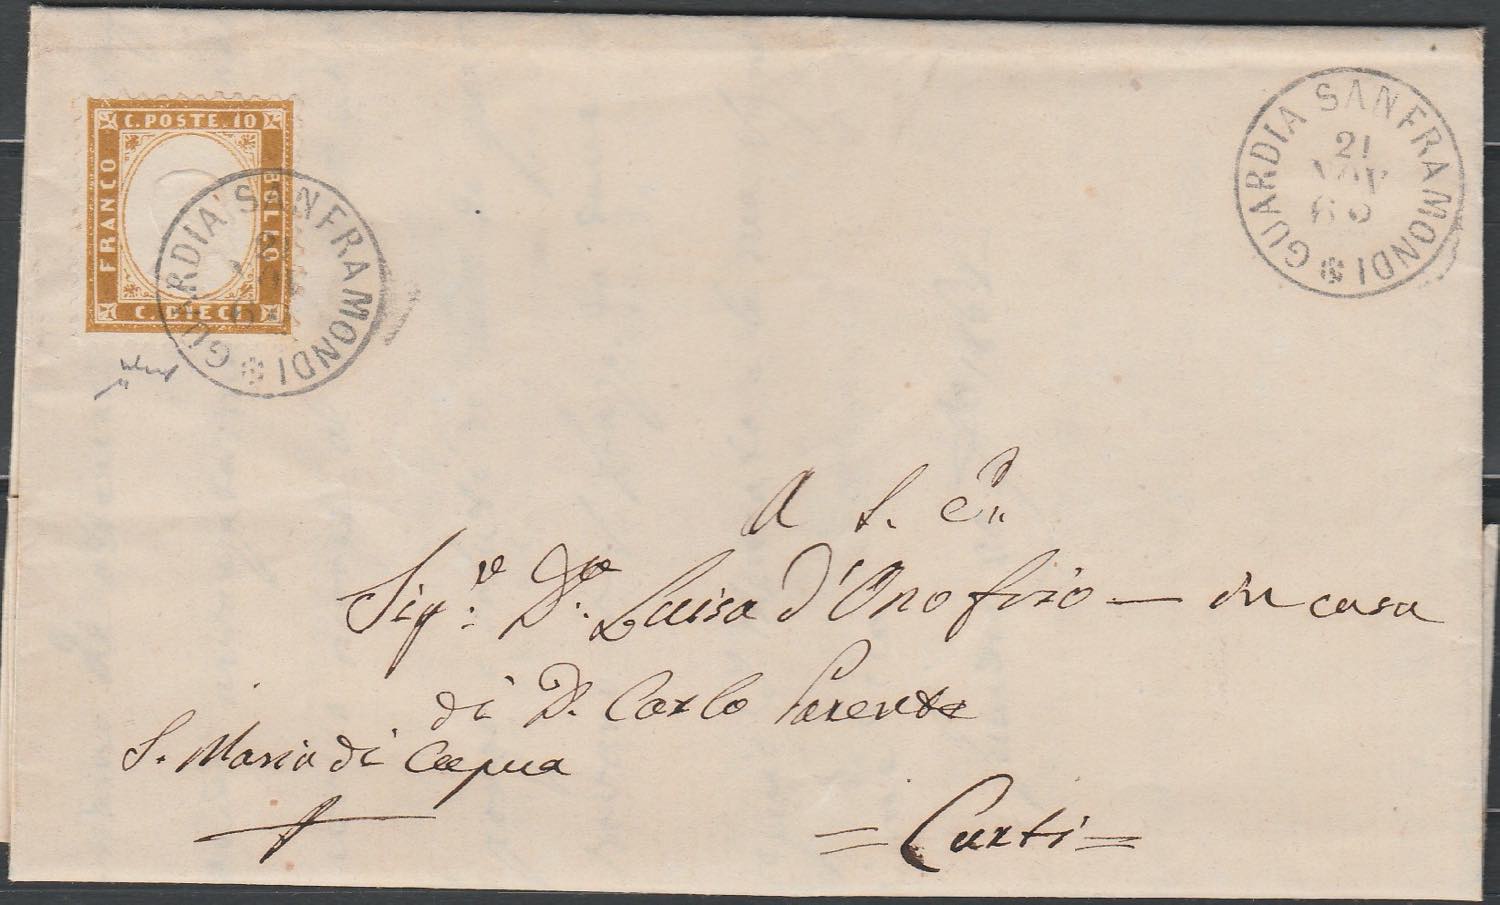 C. POSTE. 10
FRANCO
BOLLO
C. DIECI
GUARDIA SANFRAMONDI
GUARDIA SANFRAMONDI
21
NOV
A S. E.
Sig.ra D.a Luisa d'Onofrio — in casa
di D. Carlo Parente
S. Maria di Capua
= Curti =